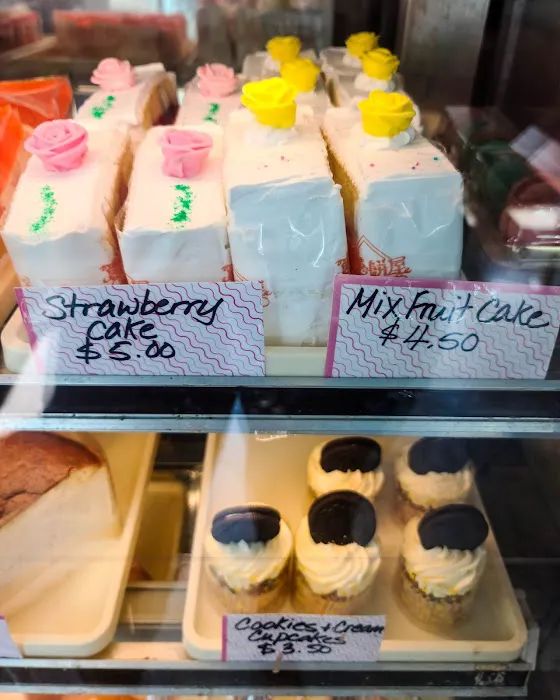 Strawberry
Cake
$5.00
Mix Fruit Cake
$4.50
餅屋
Cookies + Cream
Cupcakes
$3.50